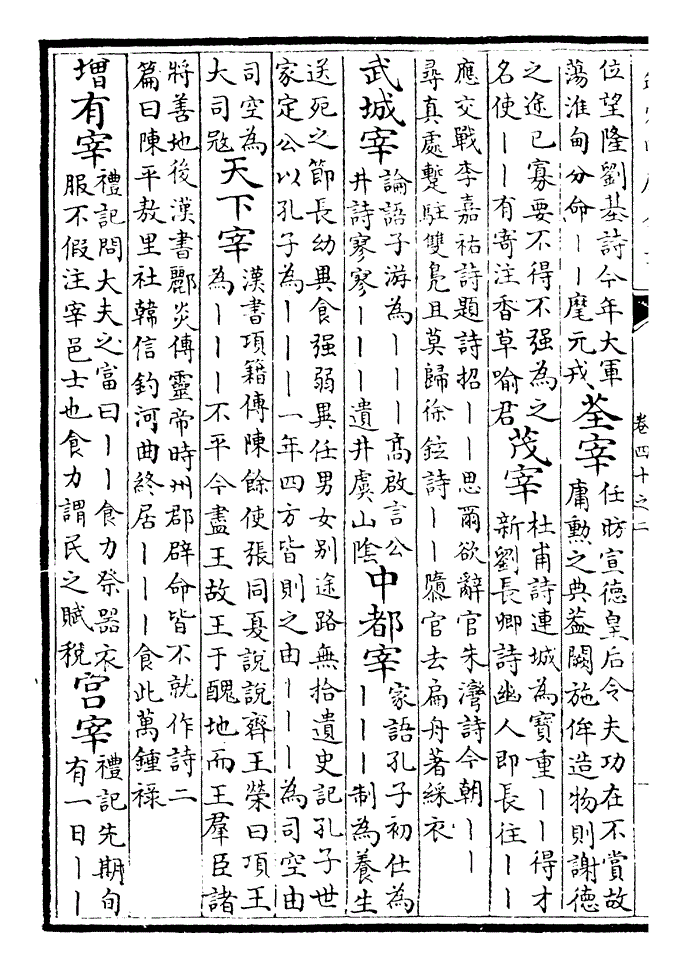 位望隆劉基詩今年大軍
蕩淮甸分命｜｜麾元戎
荃宰
任昉宣德皇后令夫功在不賞故
庸勲之典蓋闕施侔造物則謝德
之途已寡要不得不强為之
名使｜｜有寄注香草喻君
茂宰
杜甫詩連城為寶重｜｜得才
新劉長卿詩幽人即長往｜｜
應交戰李嘉祐詩題詩招｜｜思爾欲辭官朱灣詩今朝｜｜
尋真處蹔駐雙鳬且莫歸徐鉉詩｜｜隳官去扁舟著綵衣
武城宰
論語子游為｜｜｜高啟言公
井詩寥寥｜｜｜遺井虞山陰
中都宰
家語孔子初仕為
｜｜｜制為養生
送死之節長幼異食强弱異任男女别途路無拾遺史記孔子世
家定公以孔子為｜｜｜一年四方皆則之由｜｜｜為司空由
司空為
大司宼
天下宰
漢書項籍傳陳餘使張同夏說說齊王榮曰項王
為｜｜｜不平今盡王故王于醜地而王羣臣諸
將善地後漢書酈炎傳靈帝時州郡辟命皆不就作詩二
篇曰陳平敖里社韓信釣河曲終居｜｜｜食此萬鍾禄
增有宰
禮記問大夫之富曰｜｜食力祭器衣
服不假注宰邑士也食力謂民之賦税
宫宰
禮記先期旬
有一日｜｜
卷四十之二